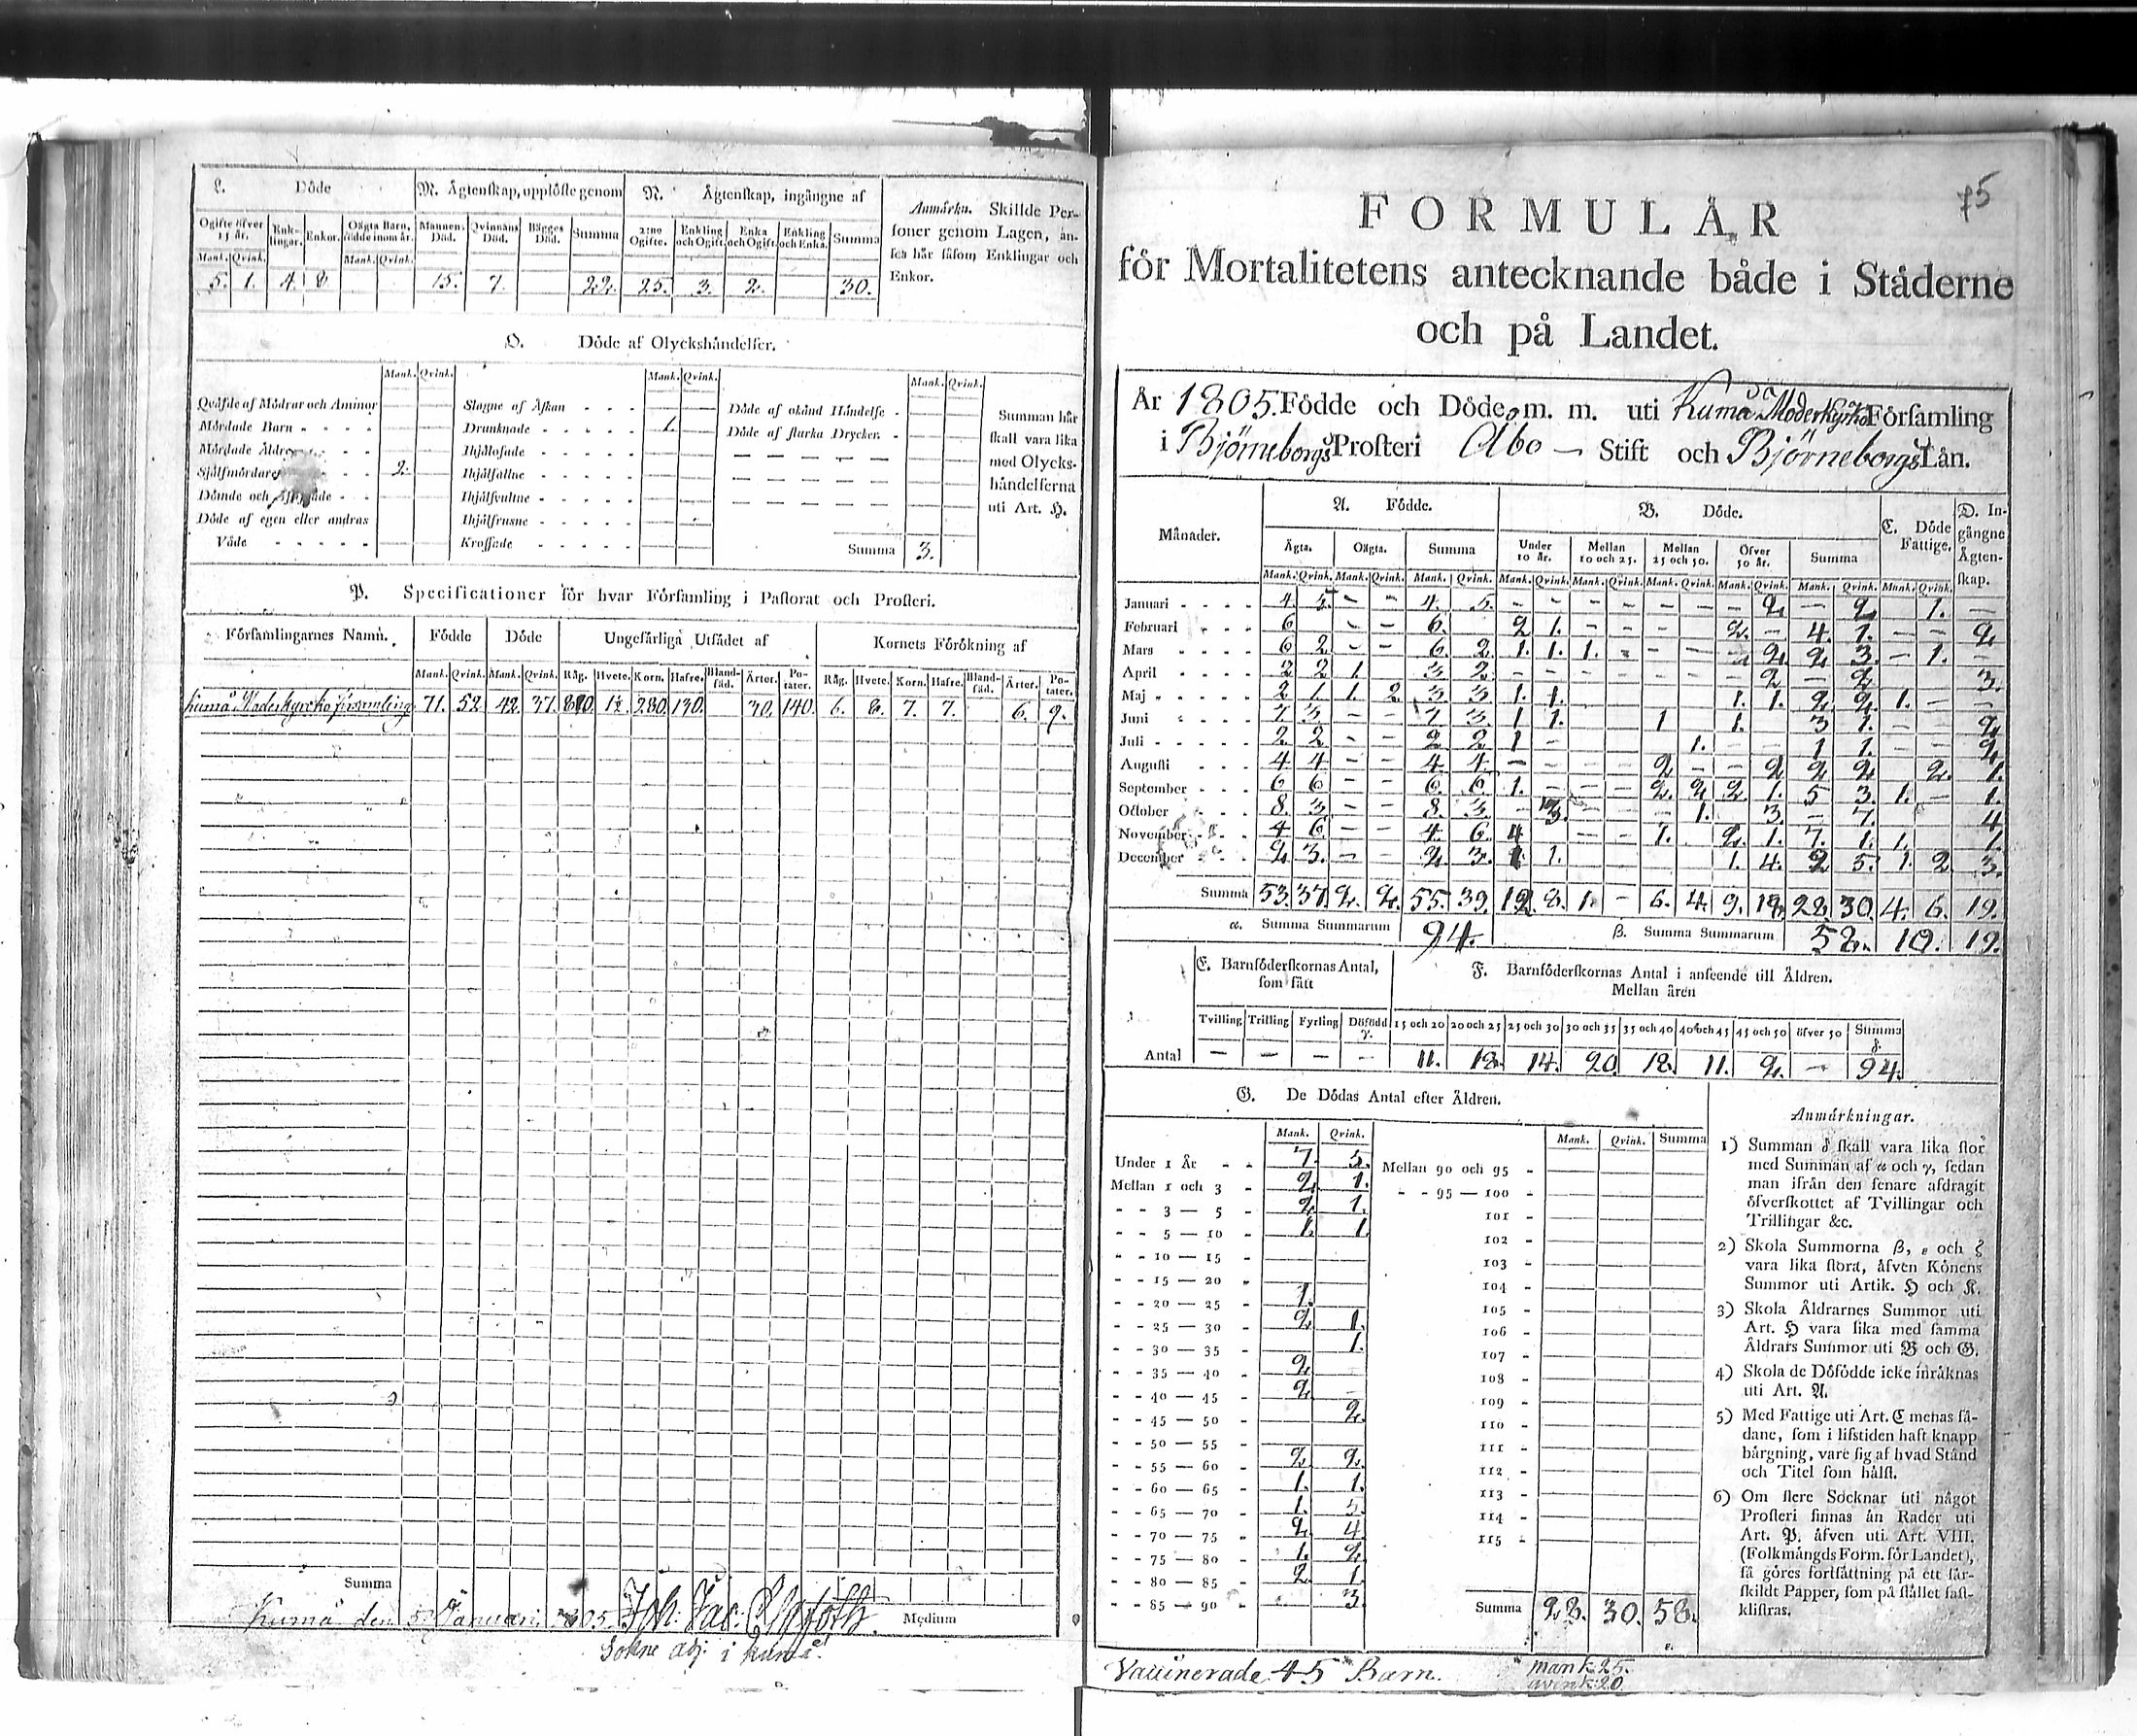 L. Döde
M. Ägtenskap, upplöste genom
N. Ägtenskap, ingångne af
Anmärkn. Skillde Personer genom Lagen, anses här såsom Enklingar och Enkor.
Ogifte öfver 15 år. Enklingar. Enkor. Oägta Barn, födde inom år. Mannens Död. Qvinnans Död. Bägges Död. Summa 2:ne Ogifte. Enkling och Ogift. Enka och Ogift. Enkling och Enka. Summa
Mank. Qvink. Mank. Qvink.
5. 1. 4. 8 15. 7. 22. 25. 3. 2. 30.
O. Döde af Olyckshändelser.
Mank. Qvink. Mank. Qvink. Mank. Qvink.
Qväfde af Mödrar och Ammor
Mördade Barn
Mördade Äldre
Självmördare 2.
Dömde och
Döde af egen eller andras
Våde
Slagne af Åskan
Drunknade 1.
Ihjälosade
Ihjälfallne
Ihjälsvultne
Ihjälfrusne
Krossade
Döde af okänd Händelse
Döde af starka Drycker.
Summa 3.
Summan här
skall vara lika
med Olycks-
händelserna
uti Art. H.
P. Specificationer för hvar Församling i Pastorat och Prosteri.
Församlingarnes Namn. Födde Döde Ungefärliga Utsädet af Kornets Förökning af
Mank. Qvink. Mank. Qvink. Råg. Hvete. Korn. Hafre. Bland-säd. Ärter. Potater. Råg. Hvete. Korn. Hafre. Bland-säd. Ärter. Potater.
Kumå Moderkyrko församling 71. 52. 42. 37. 1½ 280. 130. 30. 140. 6. 8. 7. 7. 6. 9.
Summa
Medium
Kumå den 5 Januari 1805. Joh: Jac:
Sokne adj: i Kumå.
75
FORMULÄR
för Mortalitetens antecknande både i Städerne
och på Landet.
År 1805. Födde och Döde m. m. uti Kumå Moderkyrko Församling
i Björneborgs Prosteri Åbo — Stift och Björneborgs Län.
Månader. A. Födde. B. Döde. C. Döde Fattige. D. Ingångne Ägtenskap.
Ägta. Oägta. Summa Under 10 år. Mellan 10 och 25. Mellan 25 och 50. Öfver 50 år. Summa
Mank. Qvink. Mank. Qvink. Mank. Qvink. Mank. Qvink. Mank. Qvink. Mank. Qvink. Mank. Qvink. Mank. Qvink. Mank. Qvink.
Januari 4. 5. – – 4. 5. – – – – – – – 2. – 2. 1. –
Februari 6 – – 6. 2 1. – – – 2. – 4. 1. – – 2.
Mars 6 2. – – 6. 2. 1. 1. 1. – – – – 2. 2. 3. – 1. –
April 2 2 1. – 3 2. – – – – – – – 2 – 2. 3.
Maj 2 1. 1. 2. 3 3 1. 1. 1. 1. 2. 2. 1. – –
Juni 7 3. – – 7 3. 1 1. 1 1. 3 1. – – 2.
Juli 2. 2 – – 2 2 1 – 1. – – 1 1. – – 2.
Augusti 4 4 – – 4. 4. – – – – 2 – – 2 2 2. 2. 1.
September 6 6 – – 6. 6. 1. – – – 2. 2. 2. 1. 5 3. 1. – 1.
October 8. 3 – – 8. 3. – 3. – – – 1. 3. – 7. 4
November 4 6. – – 4. 6. 4 – – 1. 2. 1. 7. 1. 1. 1.
December 2. 3. – – 2. 3. 1. 1. 1. 4. 2 5. 1. 2 3.
Summa 53. 37. 2. 2. 55. 39. 12. 8. 1. – 6. 4. 9. 18. 28. 30. 4. 6. 19.
α. Summa Summarum 94. β. Summa Summarum 58. 10. 19.
E. Barnföderskornas Antal, som fått
F. Barnföderskornas Antal i anseende till Åldren.
Mellan åren
Tvilling Trilling Fyrling Döfödd γ. 15 och 20 20 och 25 25 och 30 30 och 35 35 och 40 40 och 45 45 och 50 öfver 50 Summa δ.
Antal – – – – 11. 18. 14. 20. 18. 11. 2. – 94.
G. De Dödas Antal efter Åldren.
Mank. Qvink. Mank. Qvink. Summa
Under 1 År 7. 5.
Mellan 1 och 3 2. 1.
3 — 5 2. 1.
5 — 10 1. 1.
10 — 15
15 — 20
20 — 25 1.
25 — 30 2. 1.
30 — 35 1.
35 — 40 2.
40 — 45 2. –
45 — 50 2.
50 — 55
55 — 60 2. 2.
60 — 65 1. 1.
65 — 70 1. 5.
70 — 75 2. 4
75 — 80 1. 2.
80 — 85 2. 1.
85 — 90 3.
Mellan 90 och 95
95 — 100
101
102
103
104
105
106
107
108
109
110
111
112
113
114
115
Summa 28. 30. 58.
ε.
Anmärkningar.
1) Summan δ skall vara lika stor
med Summan af α och γ, sedan
man ifrån den senare afdragit
öfverskottet af Tvillingar och
Trillingar &c.
2) Skola Summorna β, ε och ζ
vara lika stora, äfven Könens
Summor uti Artik. H och K.
3) Skola Åldrarnes Summor uti
Art. H vara lika med samma
Åldrars Summor uti B och G.
4) Skola de Döfödde icke inräknas
uti Art. A.
5) Med Fattige uti Art. C menas så-
dane, som i lifstiden haft knapp
bärgning, vare sig af hvad Stånd
och Titel som hälst.
6) Om flere Socknar uti något
Prosteri finnas än Rader uti
Art. P. äfven uti Art. VIII.
(Folkmängds Form. för Landet),
så göres fortsättning på ett sär-
skildt Papper, som på stället fast-
klistras.
Vaccinerade 45 Barn. mank: 25.
qvink: 20.